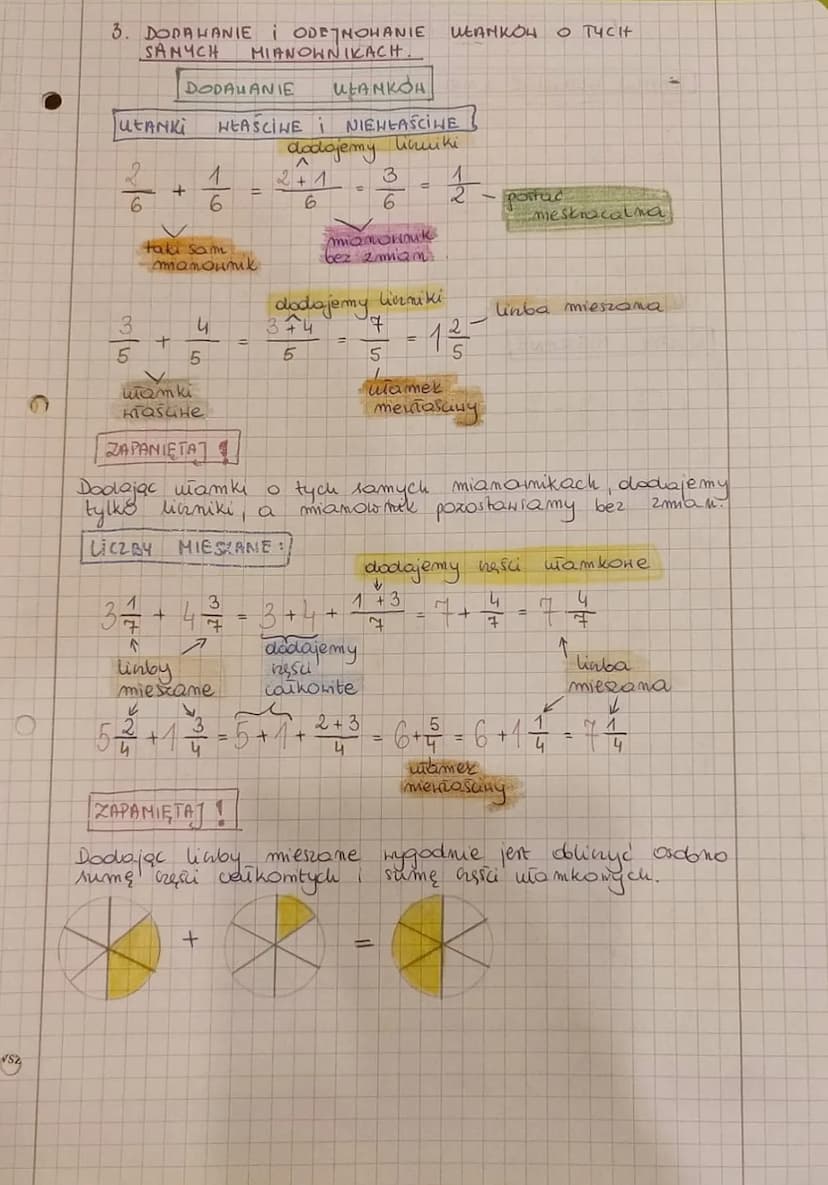 3. DODAWANIE i ODEJMOWANIE UŁAMKÓW O TYCH
SAMYCH MIANOWNIKACH.
DODAWANIE UŁAMKÓW
UŁAMKI WŁAŚCIWE i NIEWŁAŚCIWE
dodajemy liczniki
2/6 + 1/6 = 2+1/6 = 3/6 = 1/2 - postać
nieskracalna
taki sam
mianownik
mianownik
bez zmian.
dodajemy liczniki
liczba mieszana
3/5 + 4/5 = 3+4/5 = 7/5 = 1 2/5
ułamki
właściwe
ułamek
niewłaściwy
ZAPAMIĘTAJ!
Dodając ułamki o tych samych mianownikach, dodajemy
tylko liczniki, a mianownik pozostawiamy bez zmian.
LICZBY MIESZANE:
dodajemy części ułamkowe
3 1/7 + 4 3/7 = 3+4+ 1+3/7 = 7+ 4/7 = 7 4/7
liczby
mieszane
dodajemy
części
całkowite
liczba
mieszana
5 2/4 + 1 3/4 = 5+1+ 2+3/4 = 6+ 5/4 = 6+1 1/4 = 7 1/4
ułamek
niewłaściwy
ZAPAMIĘTAJ!
Dodając liczby mieszane wygodnie jest obliczyć osobno
sumę części całkowitych i sumę części ułamkowych.
+ =